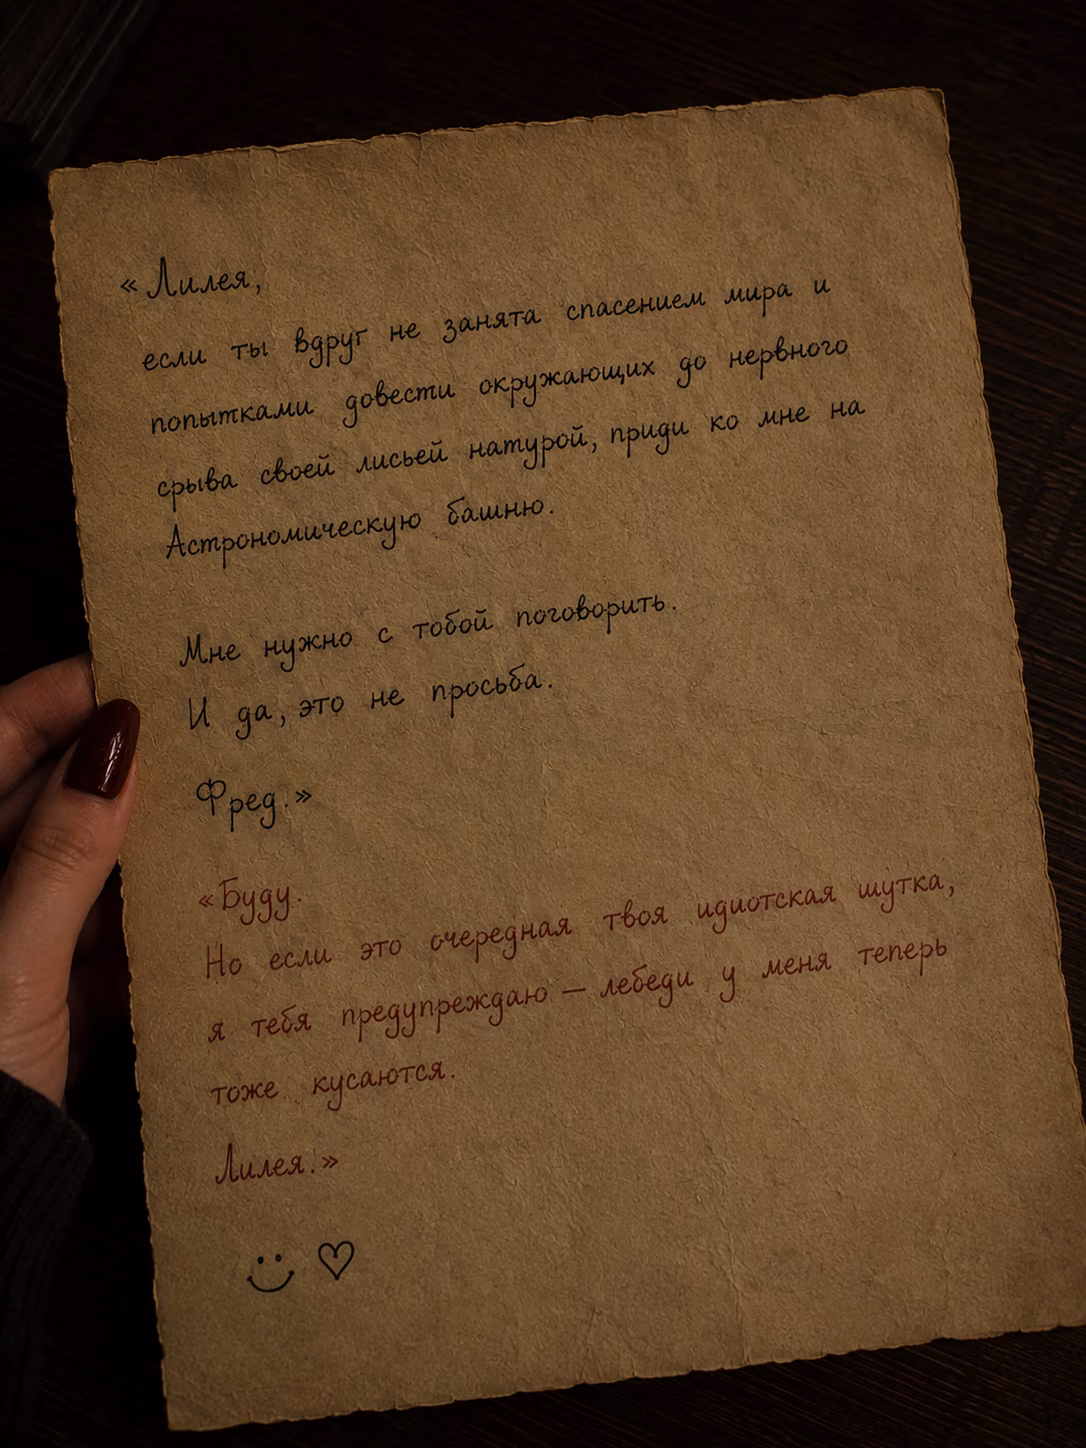 «Лилея,
если ты вдруг не занята спасением мира и
попытками довести окружающих до нервного
срыва своей лисьей натурой, приди ко мне на
Астрономическую башню.
Мне нужно с тобой поговорить.
И да, это не просьба.
Фред.»
«Буду.
Но если это очередная твоя идиотская шутка,
я тебя предупреждаю — лебеди у меня теперь
тоже кусаются.
Лилея.»